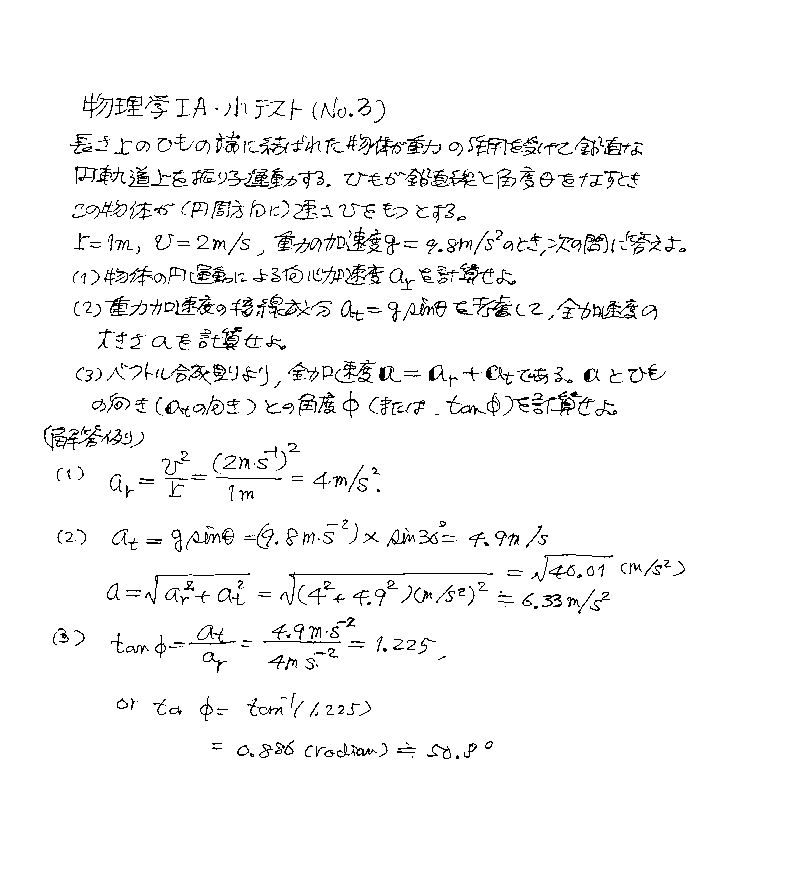 物理学IA・小テスト(No.3)
長さLのひもの端に結ばれた物体が重力の作用を受けて鉛直な
円軌道上を振り子運動する。ひもが鉛直線と角度θをなすとき
この物体が(円周方向に)速さvをもつとする。
L=1m, v=2m/s, 重力の加速度g=9.8m/s²のとき,次の問に答えよ。
(1)物体の円運動による向心加速度arを計算せよ。
(2)重力加速度の接線成分 at=g sinθを考慮して,全加速度の
大きさaを計算せよ。
(3)ベクトル合成則より,全加速度a=ar+atである。aとひも
の向き(atの向き)との角度φ(または、tanφ)を計算せよ。
(解答例)
(1) ar = v²/L = (2m·s⁻¹)²/1m = 4m/s².
(2) at = g sinθ = (9.8m·s⁻²)×sin30° = 4.9m/s
a=√ar²+at² = √(4²+4.9²)(m/s²)² = √40.01 (m/s²) ≒ 6.33m/s²
(3) tanφ = at/ar = 4.9m·s⁻²/4m s⁻² = 1.225,
or ta φ= tan⁻¹(1.225)
= 0.886 (radian) ≒ 50.8°